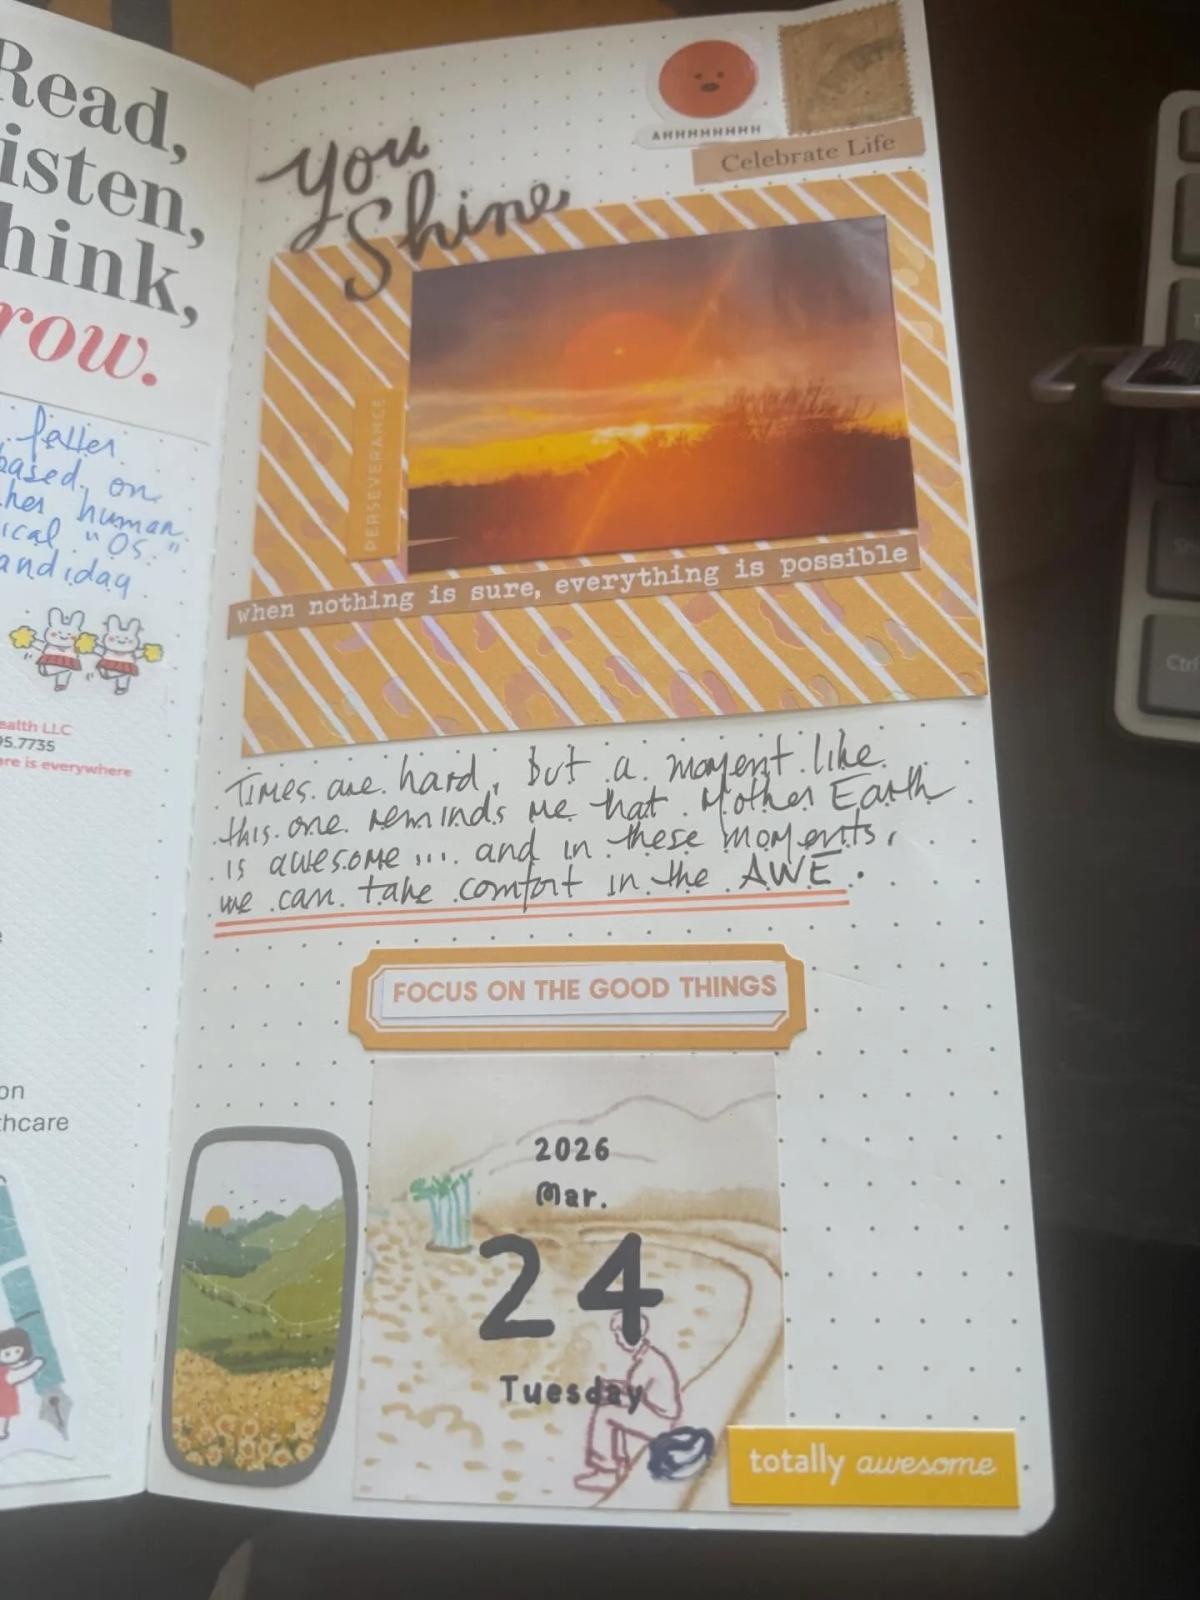 Read,
isten,
hink,
row.
based on
her human
ical "OS."
and idag
ealth LLC
95.7735
re is everywhere
on
thcare
AHHHHHHHH
Celebrate Life
you
Shine
PERSEVERANCE
when nothing is sure, everything is possible
Times are hard, but a moment like
this one reminds me that Mother Earth
is awesome ... and in these moments,
we can take comfort in the AWE.
FOCUS ON THE GOOD THINGS
2026
Mar.
24
Tuesday
totally awesome
Ctrl